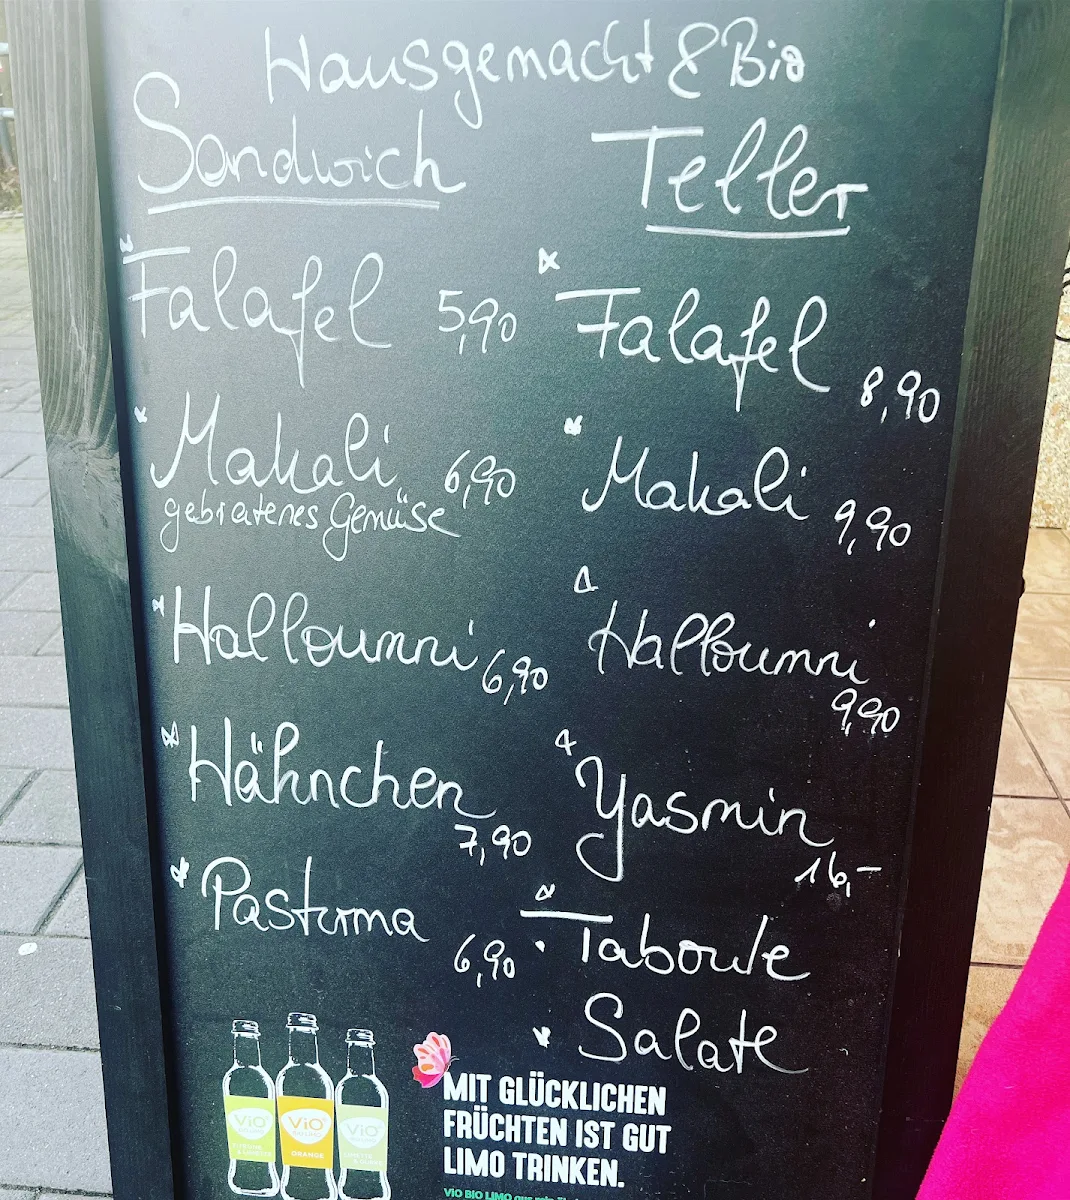 Hausgemacht & Bio
Sandwich
Falafel 5,90
Makali 6,90
gebratenes Gemüse
Halloumni 6,90
Hähnchen
7,90
Pasturma
6,90
Teller
Falafel
8,90
Makali
9,90
Halloumni
9,90
Yasmin
16,-
Taboule
Salate
ViO
ViO
ORANGE
ViO
MIT GLÜCKLICHEN
FRÜCHTEN IST GUT
LIMO TRINKEN.
VIO BIO LIMO